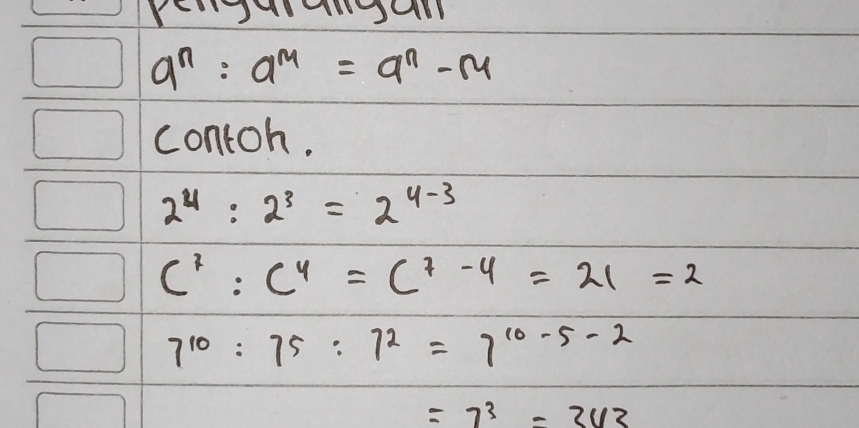 pengurangan
aⁿ : aᵐ = aⁿ - m
contoh.
2⁴ : 2³ = 2⁴⁻³
C⁷ : C⁴ = C⁷ - 4 = 21 = 2
7¹⁰ : 75 : 7² = 7¹⁰⁻⁵⁻²
= 7³ = 343